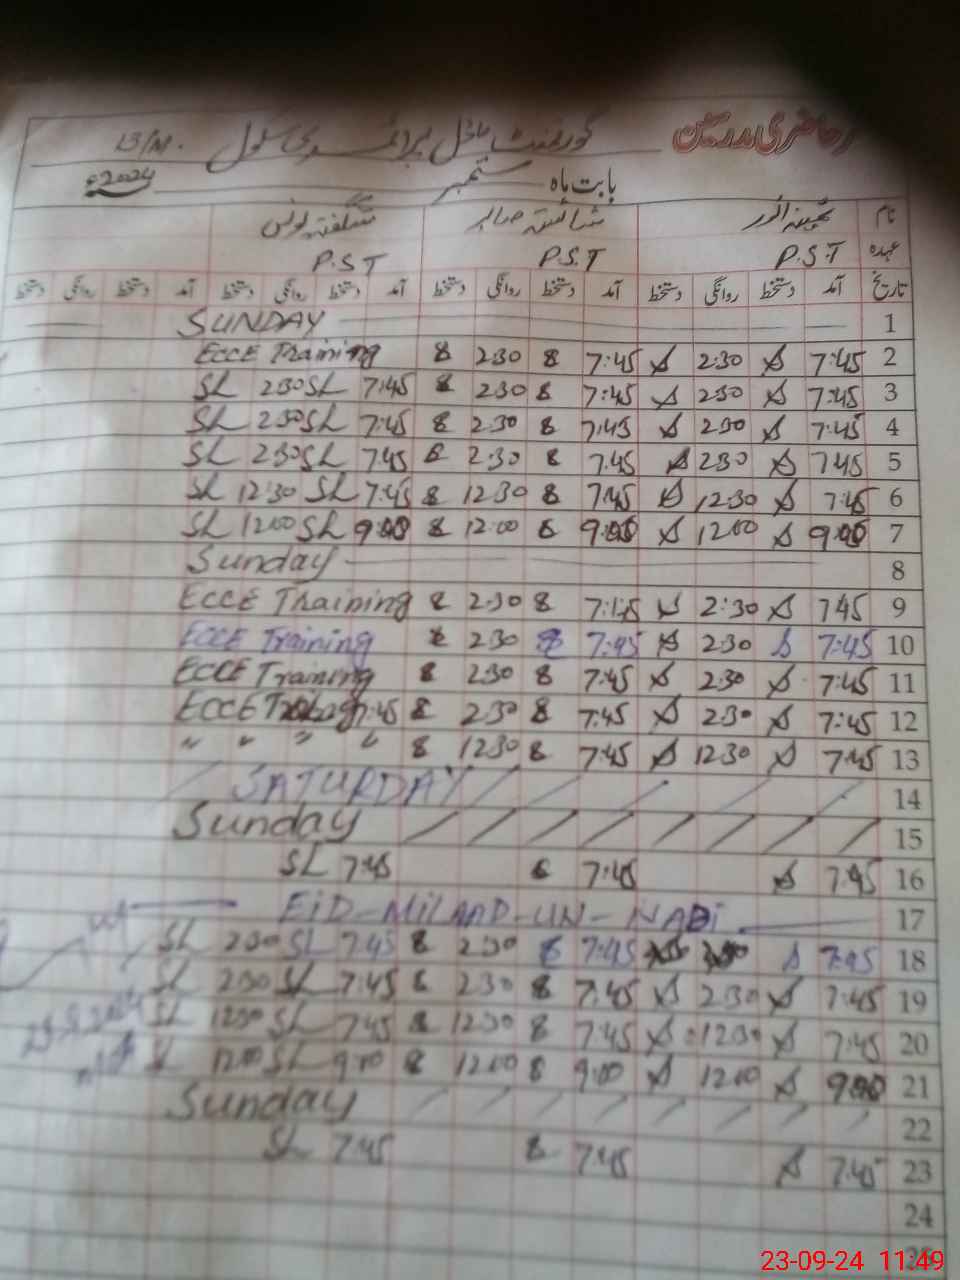 حاضری مدرسین گورنمنٹ ماڈل پرائمری سکول
بابت ماہ ستمبر 2024ء
نام شگفتہ یونس
عہدہ P.S.T P.S.T P.S.T
تاریخ آمد دستخط روانگی دستخط آمد دستخط روانگی دستخط آمد دستخط روانگی دستخط آمد دستخط روانگی دستخط
1 SUNDAY
2 7:45 2:30 7:45 2:30 ECCE Training
3 7:45 2:30 7:45 2:30 7:45 SL 2:30 SL
4 7:45 2:30 7:45 2:30 7:45 SL 2:30 SL
5 7:45 2:30 7:45 2:30 7:45 SL 2:30 SL
6 7:45 12:30 7:45 12:30 7:45 SL 12:30 SL
7 9:00 12:00 9:00 12:00 9:00 SL 12:00 SL
8 Sunday
9 7:45 2:30 2:30 ECCE Training
10 7:45 2:30 7:45 2:30 ECCE Training
11 7:45 2:30 7:45 2:30 ECCE Training
12 7:45 2:30 7:45 2:30 7:45 ECCE
13 7:45 12:30 7:45 12:30 " " " "
14 SATURDAY
15 Sunday
16 7:45 7:45 7:45 SL
17 EID-MILAAD-UN-NABI
18 7:45 7:45 2:30 7:45 SL 2:30 SL
19 7:45 2:30 7:45 2:30 7:45 SL 2:30 SL
20 7:45 12:30 7:45 12:30 7:45 SL 12:30 SL
21 9:00 12:00 9:00 12:00 9:00 SL 12:00
22 Sunday
23 7:45 7:45 7:45 SL
24
25
23-09-24 11:49